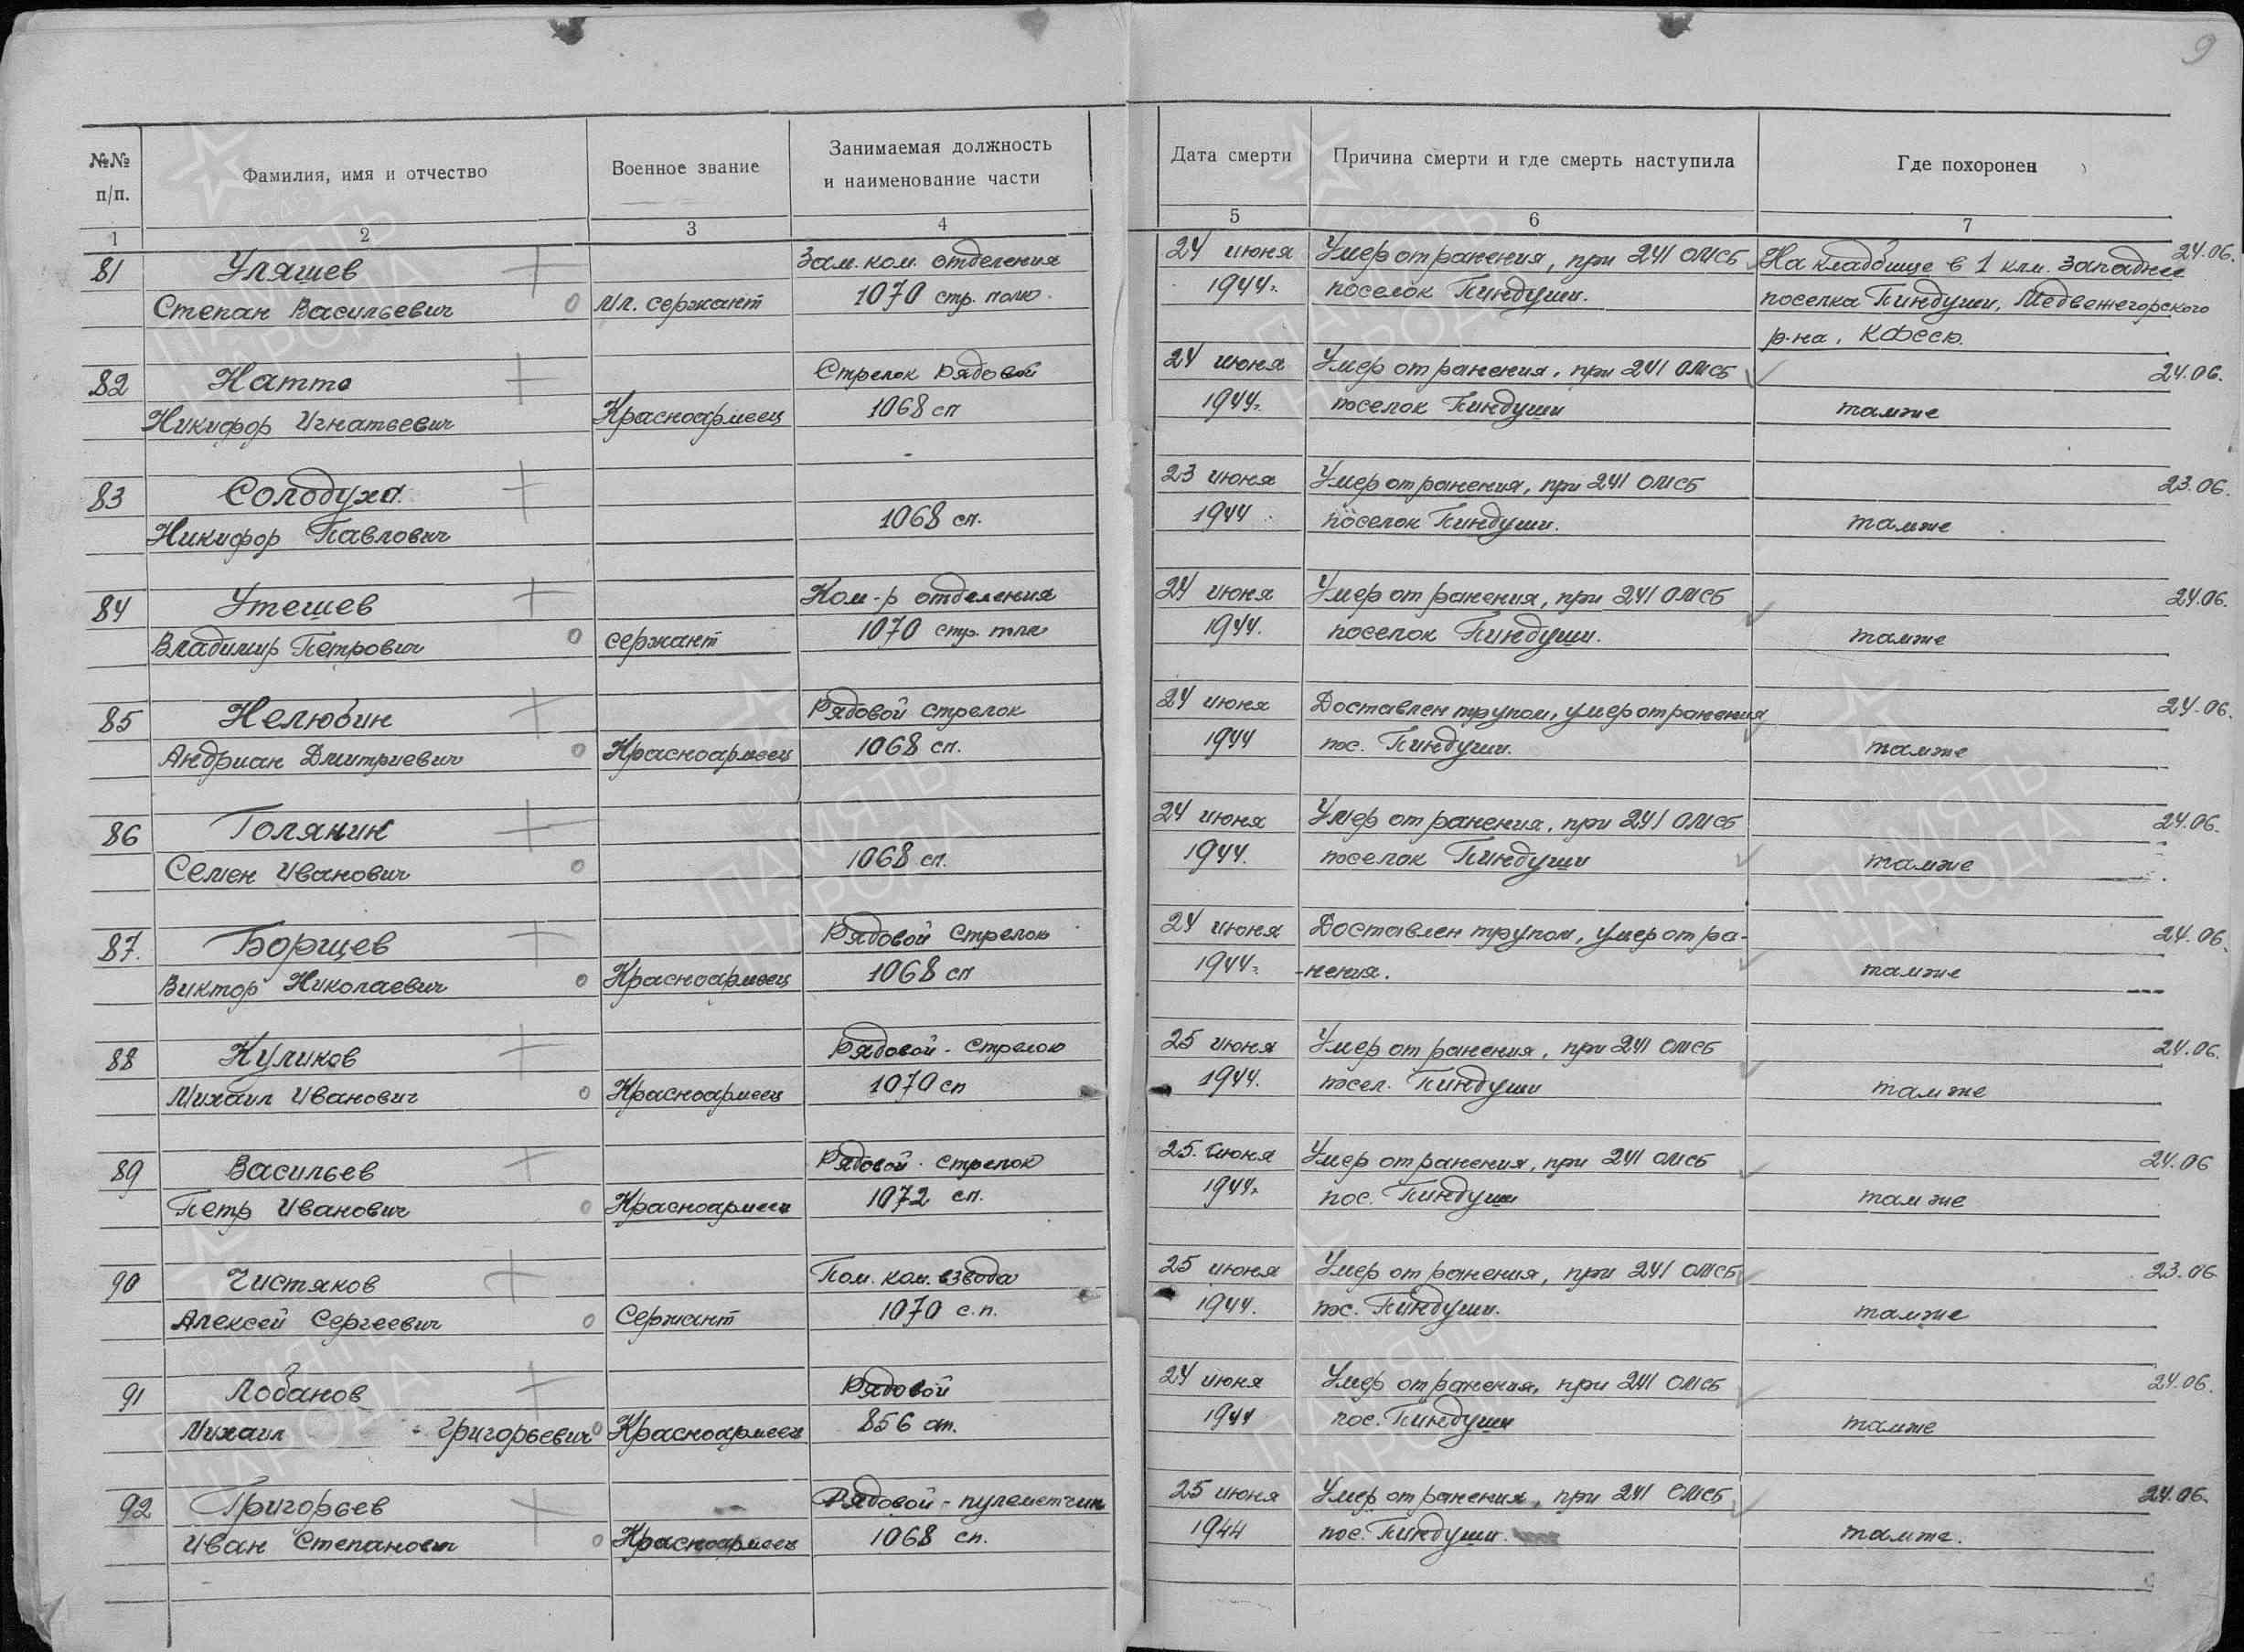 9
№№ п/п.
Фамилия, имя и отчество
Военное звание
Занимаемая должность
и наименование части
Дата смерти
Причина смерти и где смерть наступила
Где похоронен
1 2 3 4 5 6 7
81 Уляшев Зам. ком. отделения 24 июня Умер от ранения, при 241 ОМСБ На кладбище в 1 клм. западнее 24.06.
Степан Васильевич мл. сержант 1070 стр. полк. 1944г. поселок Пиндуши. поселка Пиндуши, Медвежегорского
р-на, КФССР.
82 Натто Стрелок рядовой 24 июня Умер от ранения, при 241 ОМСБ 24.06.
Никифор Игнатьевич Красноармеец 1068 сп 1944г. поселок Пиндуши тамже
83 Солодуха 23 июня Умер от ранения, при 241 ОМСБ 23.06.
Никифор Павлович 1068 сп. 1944 поселок Пиндуши. тамже
84 Утешев Ком-р отделения 24 июня Умер от ранения, при 241 ОМСБ 24.06.
Владимир Петрович сержант 1070 стр. полк 1944. поселок Пиндуши. тамже
85 Нелюбин Рядовой стрелок 24 июня Доставлен трупом, умер от ранения 24.06.
Андриан Дмитриевич Красноармеец 1068 сп. 1944 пос. Пиндуши. тамже
86 Голянин 24 июня Умер от ранения, при 241 ОМСБ 24.06.
Семен Иванович 1068 сп. 1944. поселок Пиндуши тамже
87. Борщев Рядовой Стрелок 24 июня Доставлен трупом, умер от ра- 24.06.
Виктор Николаевич Красноармеец 1068 сп 1944г. -нения. тамже
88 Куликов Рядовой - Стрелок 25 июня Умер от ранения, при 241 ОМСБ 24.06.
Михаил Иванович Красноармеец 1070 сп 1944. посел. Пиндуши тамже
89 Васильев Рядовой - стрелок 25. июня Умер от ранения, при 241 ОМСБ 24.06
Петр Иванович Красноармеец 1072 сп. 1944г. пос. Пиндуши тамже
90 Чистяков Пом. ком. взвода 25 июня Умер от ранения, при 241 ОМСБ 23.06
Алексей Сергеевич Сержант 1070 с.п. 1944. пос. Пиндуши. тамже
91 Лобанов Рядовой 24 июня Умер от ранения, при 241 ОМСБ 24.06.
Михаил Григорьевич Красноармеец 856 ап. 1944 пос. Пиндуши тамже
92 Григорьев Рядовой - пулеметчик 25 июня Умер от ранения, при 241 ОМСБ 24.06.
Иван Степанович Красноармеец 1068 сп. 1944 пос. Пиндуши. тамже.
ПАМЯТЬ
НАРОДА